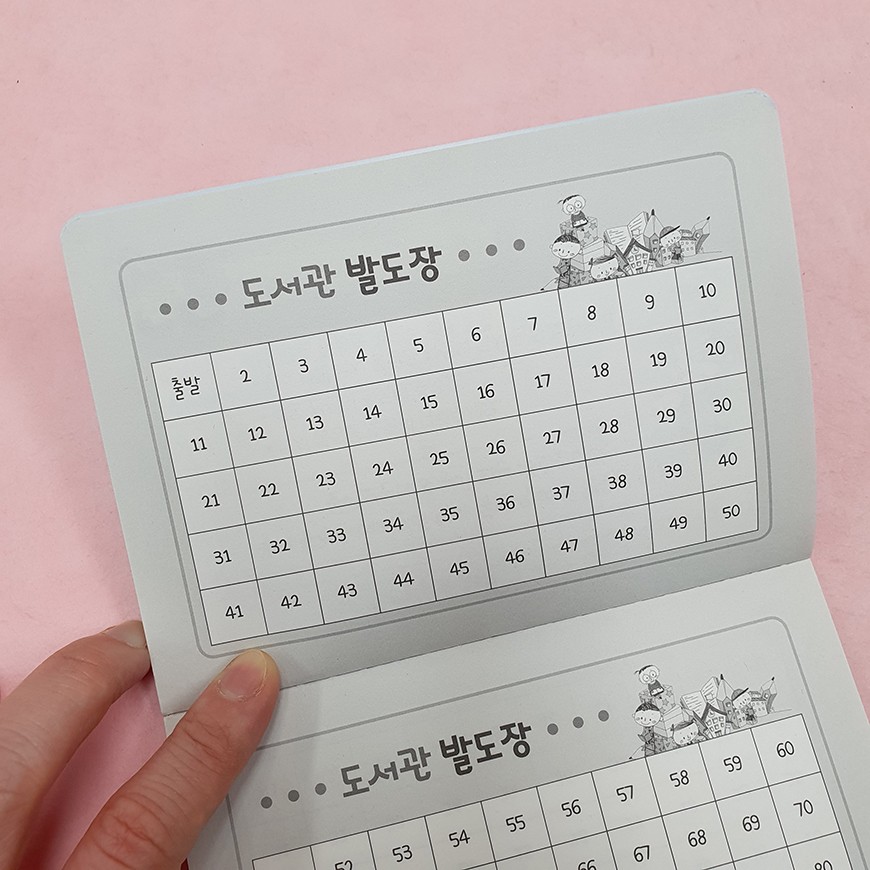 • • • 도서관 발도장 • • •
출발 2 3 4 5 6 7 8 9 10
11 12 13 14 15 16 17 18 19 20
21 22 23 24 25 26 27 28 29 30
31 32 33 34 35 36 37 38 39 40
41 42 43 44 45 46 47 48 49 50
• • • 도서관 발도장 • • •
52 53 54 55 56 57 58 59 60
66 67 68 69 70
80